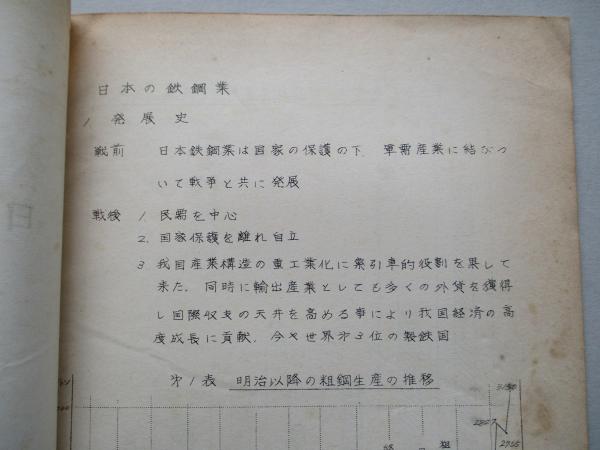 日本の鉄鋼業
1 発展史
戦前 日本鉄鋼業は国家の保護の下、軍需産業に結びつ
いて戦争と共に発展
戦後 1. 民需を中心
2. 国家保護を離れ自立
3 我国産業構造の重工業化に索引車的役割を果して
来た。同時に輸出産業としても多くの外貨を獲得
し国際収支の天井を高める事により我国経済の高
度成長に貢献、今や世界才3位の製鉄国
才1表 明治以降の粗鋼生産の推移
粗